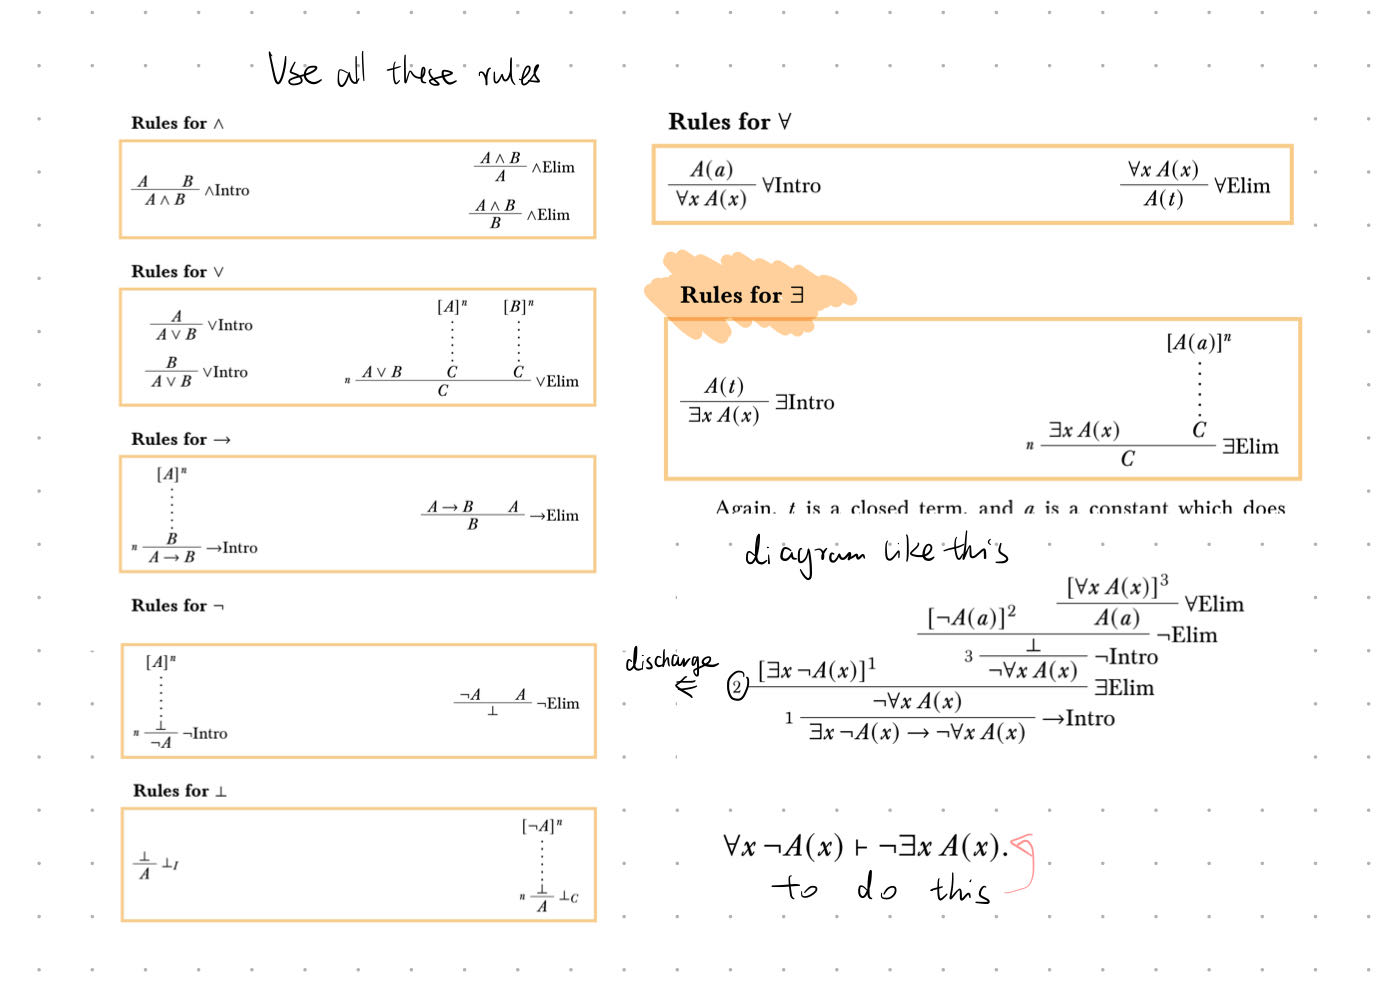 Use all these rules
Rules for ∧
A B
A ∧ B
∧Intro
A ∧ B
A
∧Elim
A ∧ B
B
∧Elim
Rules for ∨
A
A ∨ B
∨Intro
B
A ∨ B
∨Intro
[A]ⁿ [B]ⁿ
n
A ∨ B C C
C
∨Elim
Rules for →
[A]ⁿ
n
B
A → B
→Intro
A → B A
B
→Elim
Rules for ¬
[A]ⁿ
n
⊥
¬A
¬Intro
¬A A
⊥
¬Elim
Rules for ⊥
⊥
A
⊥I
[¬A]ⁿ
n
⊥
A
⊥C
Rules for ∀
A(a)
∀x A(x)
∀Intro
∀x A(x)
A(t)
∀Elim
Rules for ∃
A(t)
∃x A(x)
∃Intro
[A(a)]ⁿ
n
∃x A(x) C
C
∃Elim
Again, t is a closed term, and a is a constant which does
diagram like this
[∀x A(x)]³
∀Elim
[¬A(a)]² A(a)
¬Elim
3 ⊥
¬Intro
discharge
2 [∃x ¬A(x)]¹ ¬∀x A(x)
∃Elim
¬∀x A(x)
1
→Intro
∃x ¬A(x) → ¬∀x A(x)
∀x ¬A(x) ⊢ ¬∃x A(x).
to do this